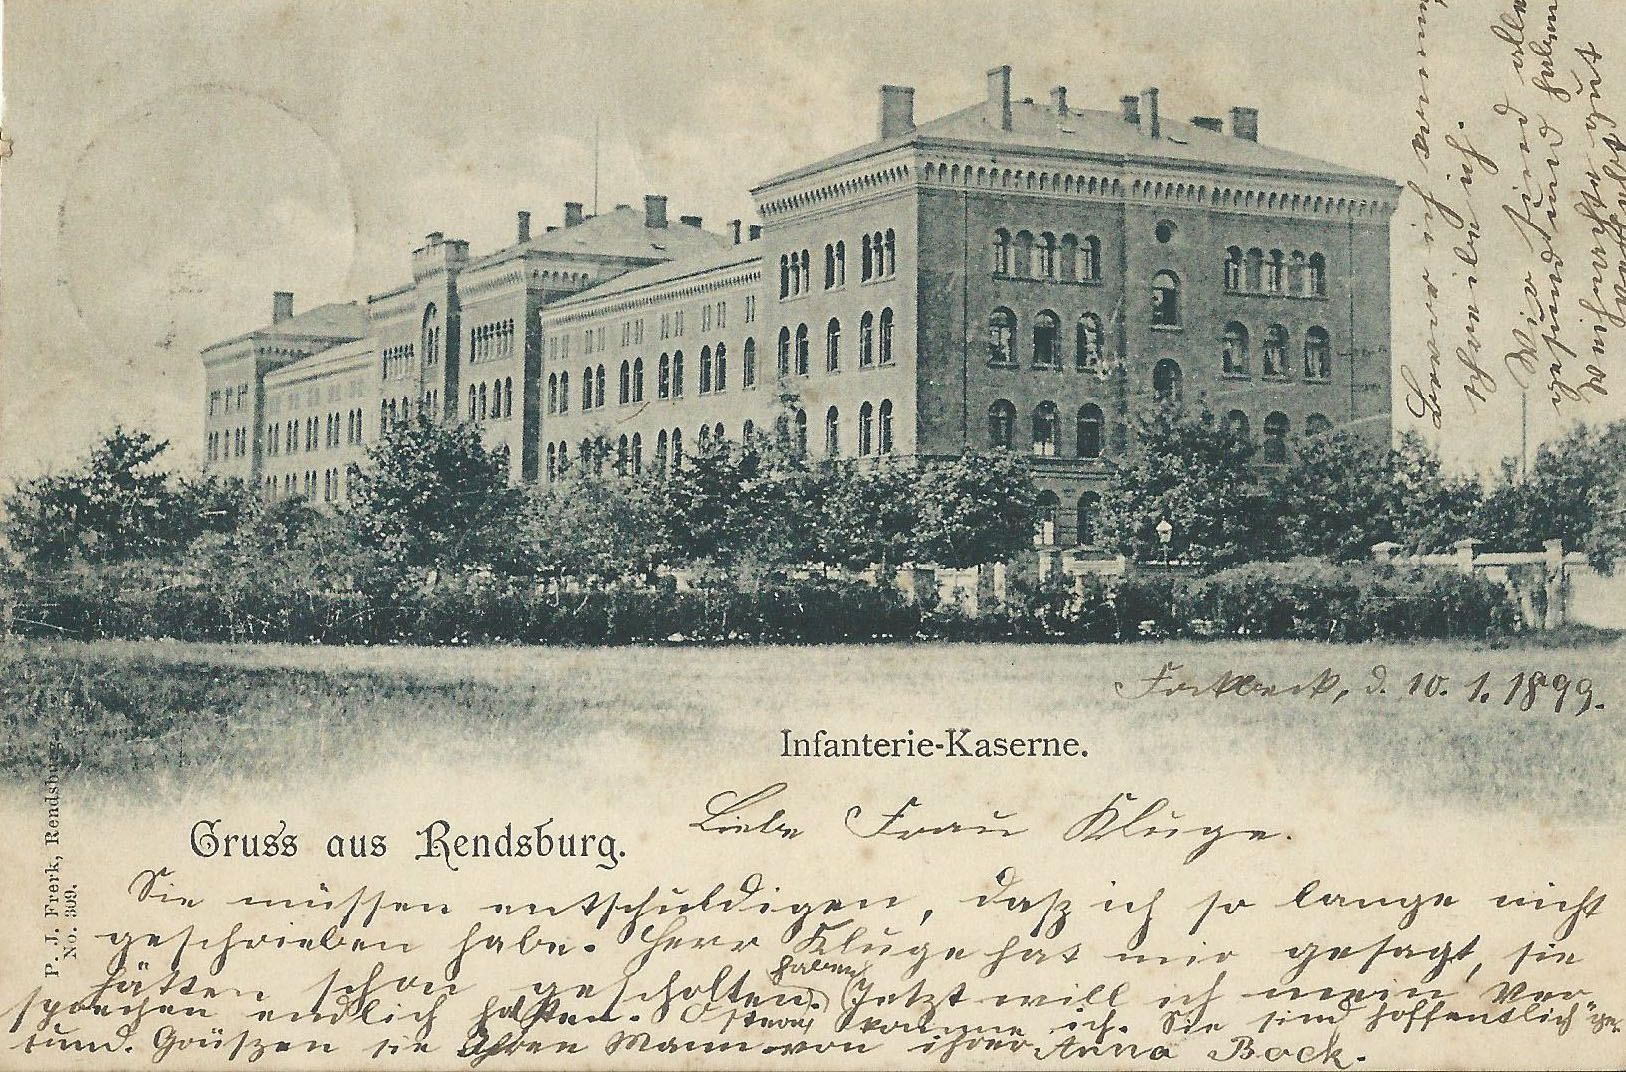 Infanterie-Kaserne.
Gruss aus Rendsburg.
P. J. Frerk, Rendsburg.
No. 309.
Fockbeck, d. 10. 1. 1899.
Liebe Frau Kluge.
Sie müssen entschuldigen, daß ich so lange nicht
geschrieben habe. Herr Kluge hat mir gesagt, sie
hätten schon gescholten. Jetzt will ich mein Ver-
haben
sprechen endlich halten. Ostern komme ich. Sie sind hoffentlich ge-
sund. Grüßen sie Ihren Mann von ihrer Anna Bock.
schreibe ich.
Wir sind alle
gesund und haben
Weihnachten gut